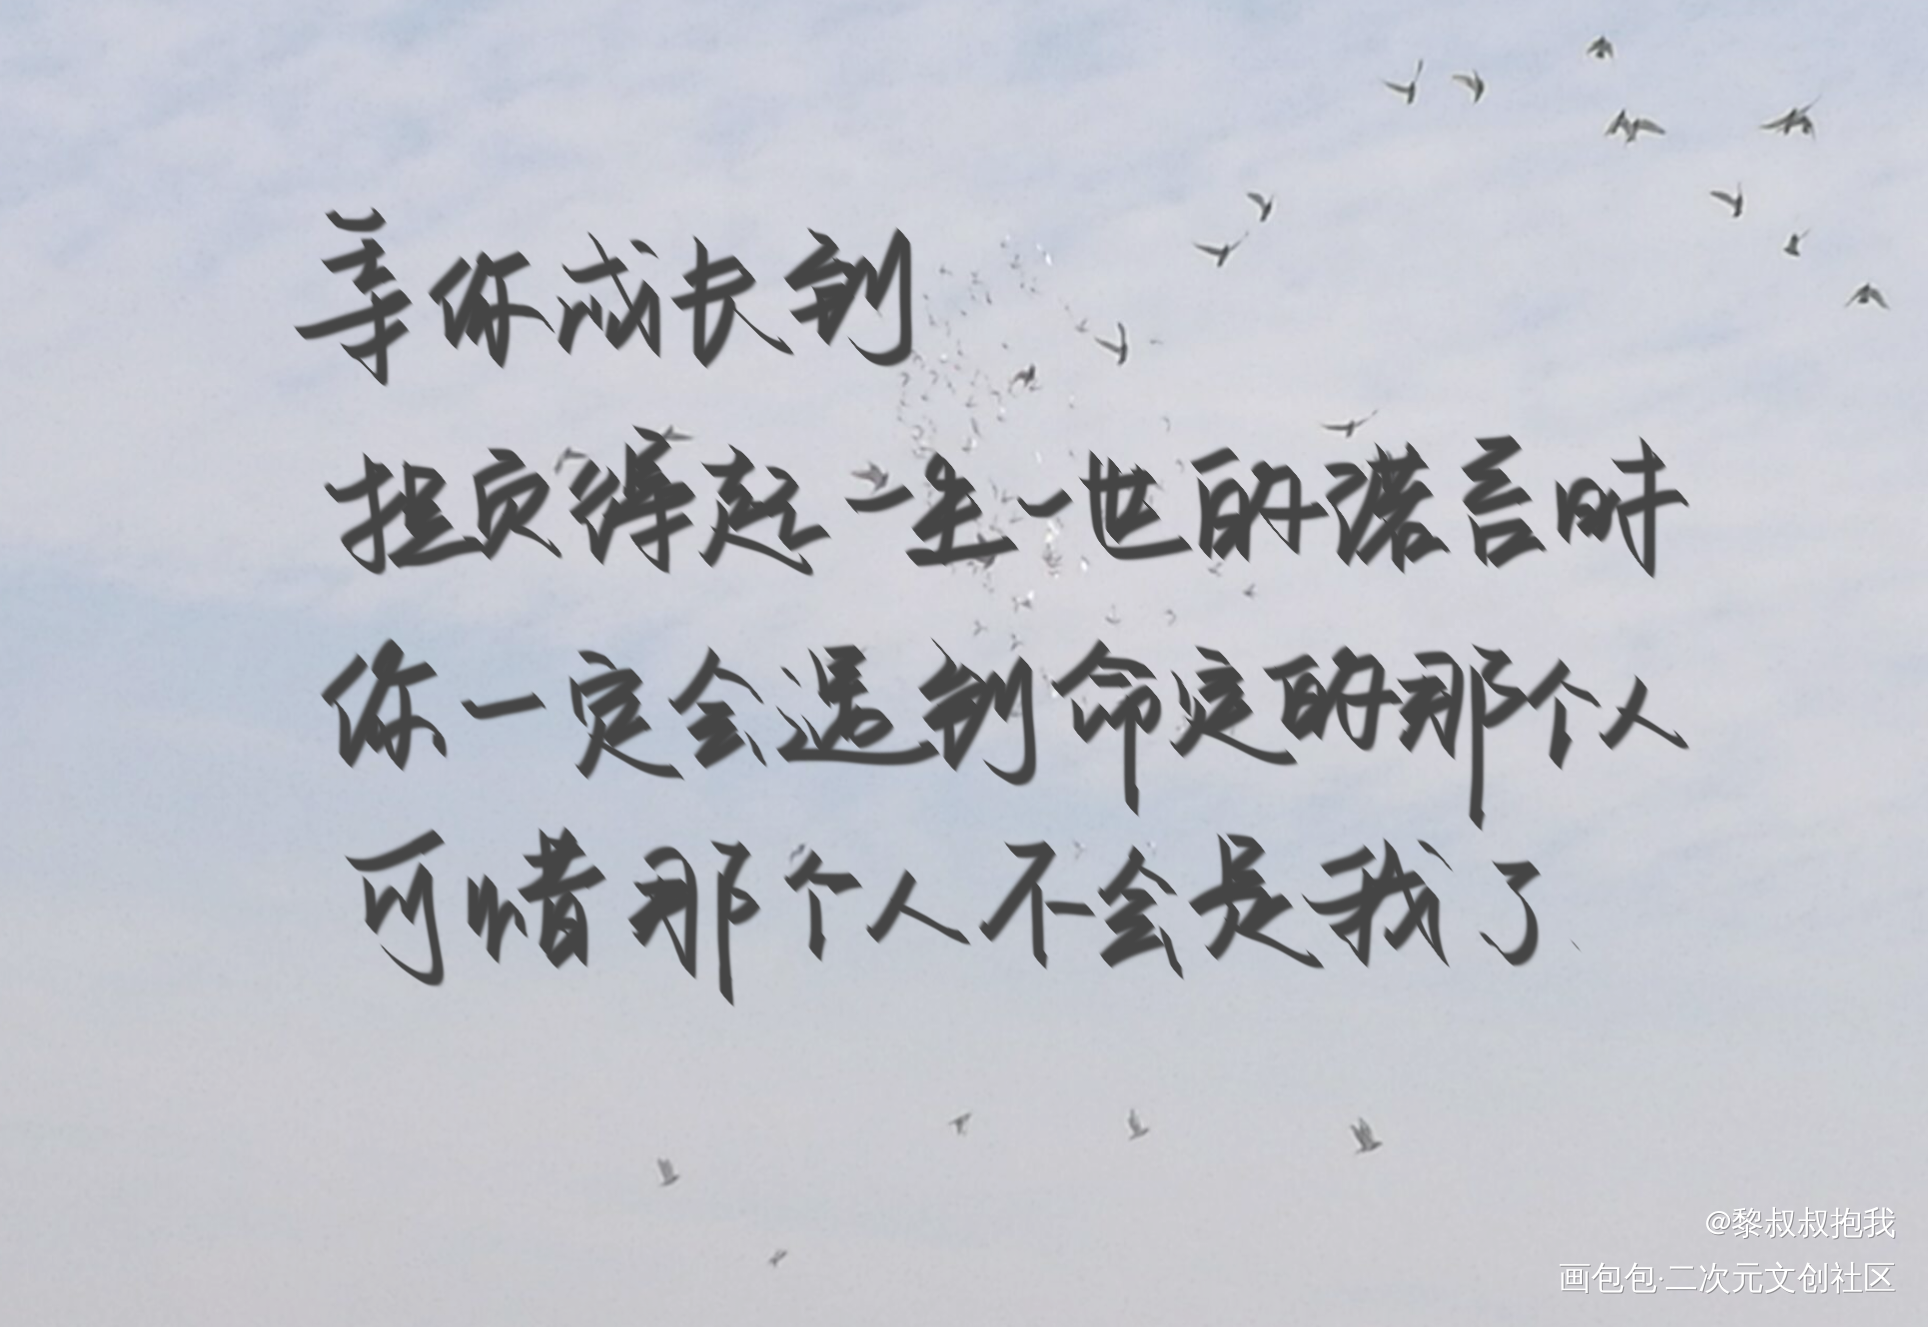 等你成长到
担负得起一生一世的诺言时
你一定会遇到命定的那个人
可惜那个人不会是我了
@黎叔叔抱我
画包包·二次元文创社区